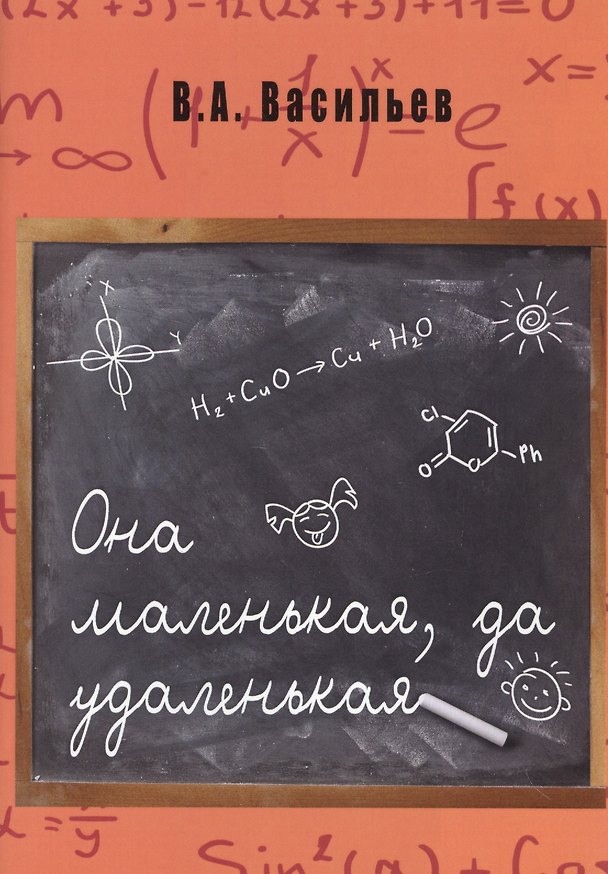 (2x + 3) - 12(2x + 3) + 11 = 0
В.А. Васильев
(1 + 1/x)^x = e
x =
m
→ ∞
∫f(x)
X
Y
H₂ + CuO → Cu + H₂O
Cl
O
O
Ph
Она
маленькая, да
удаленькая
Sin²(α) + Cos